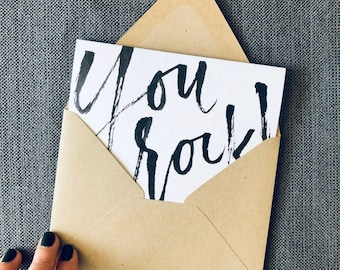 You
rock!